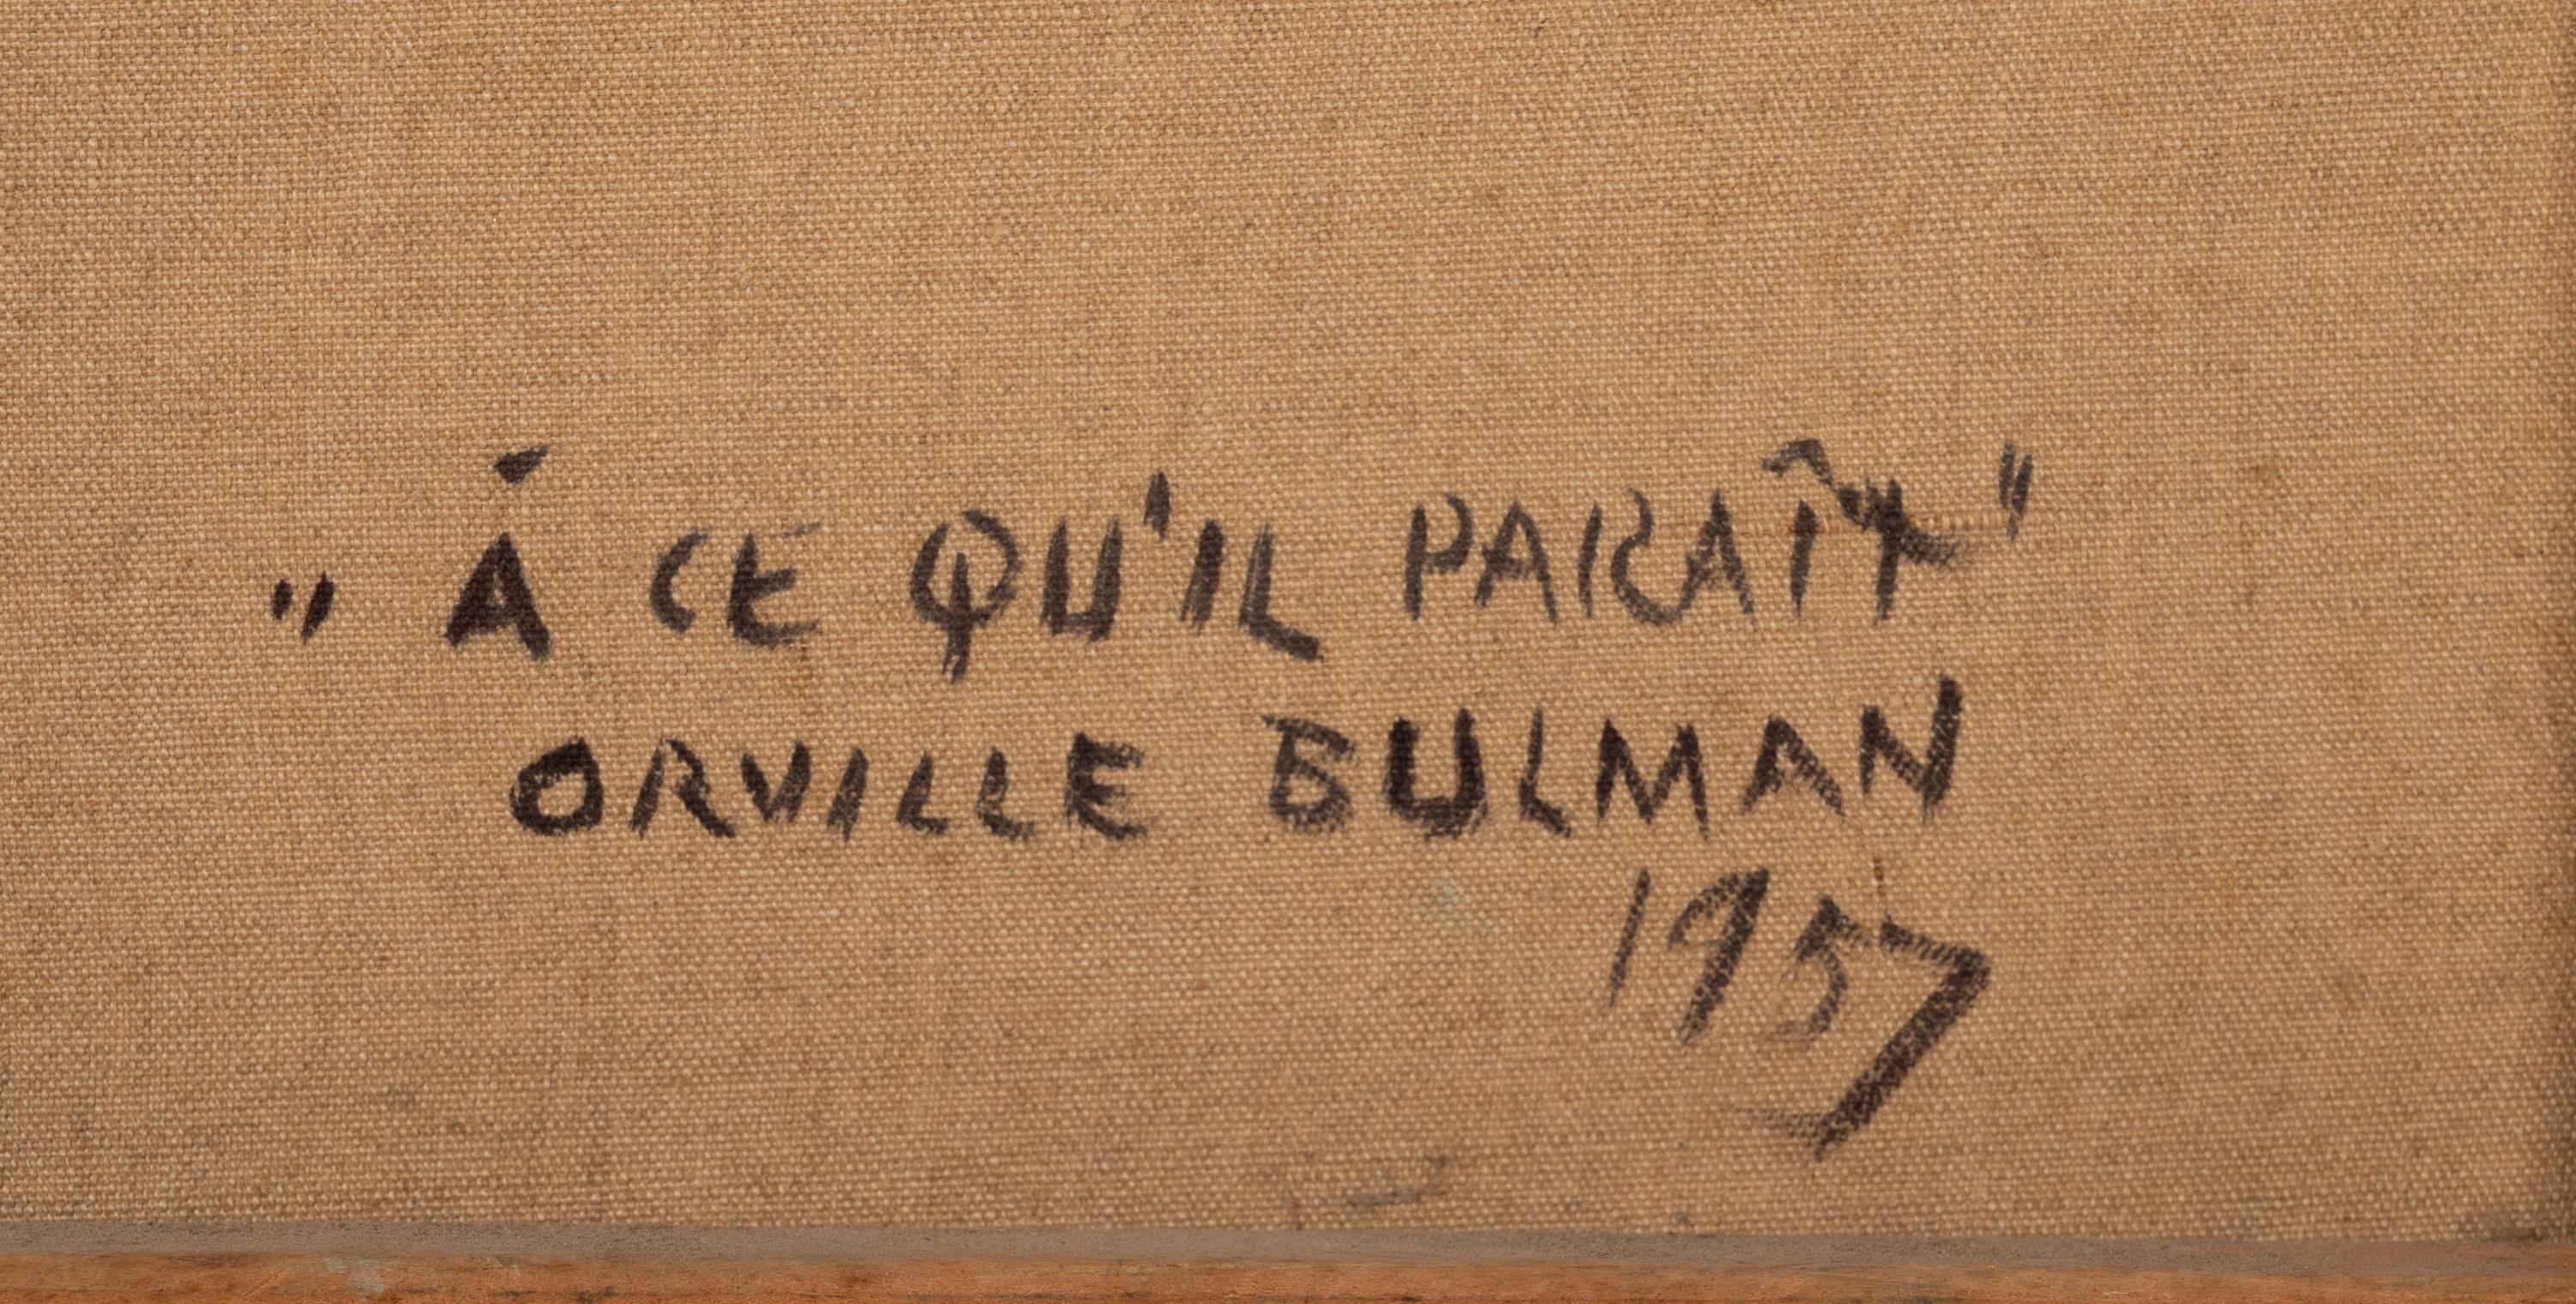 " Á CE QU'IL PARAÎT "
ORVILLE BULMAN
1957